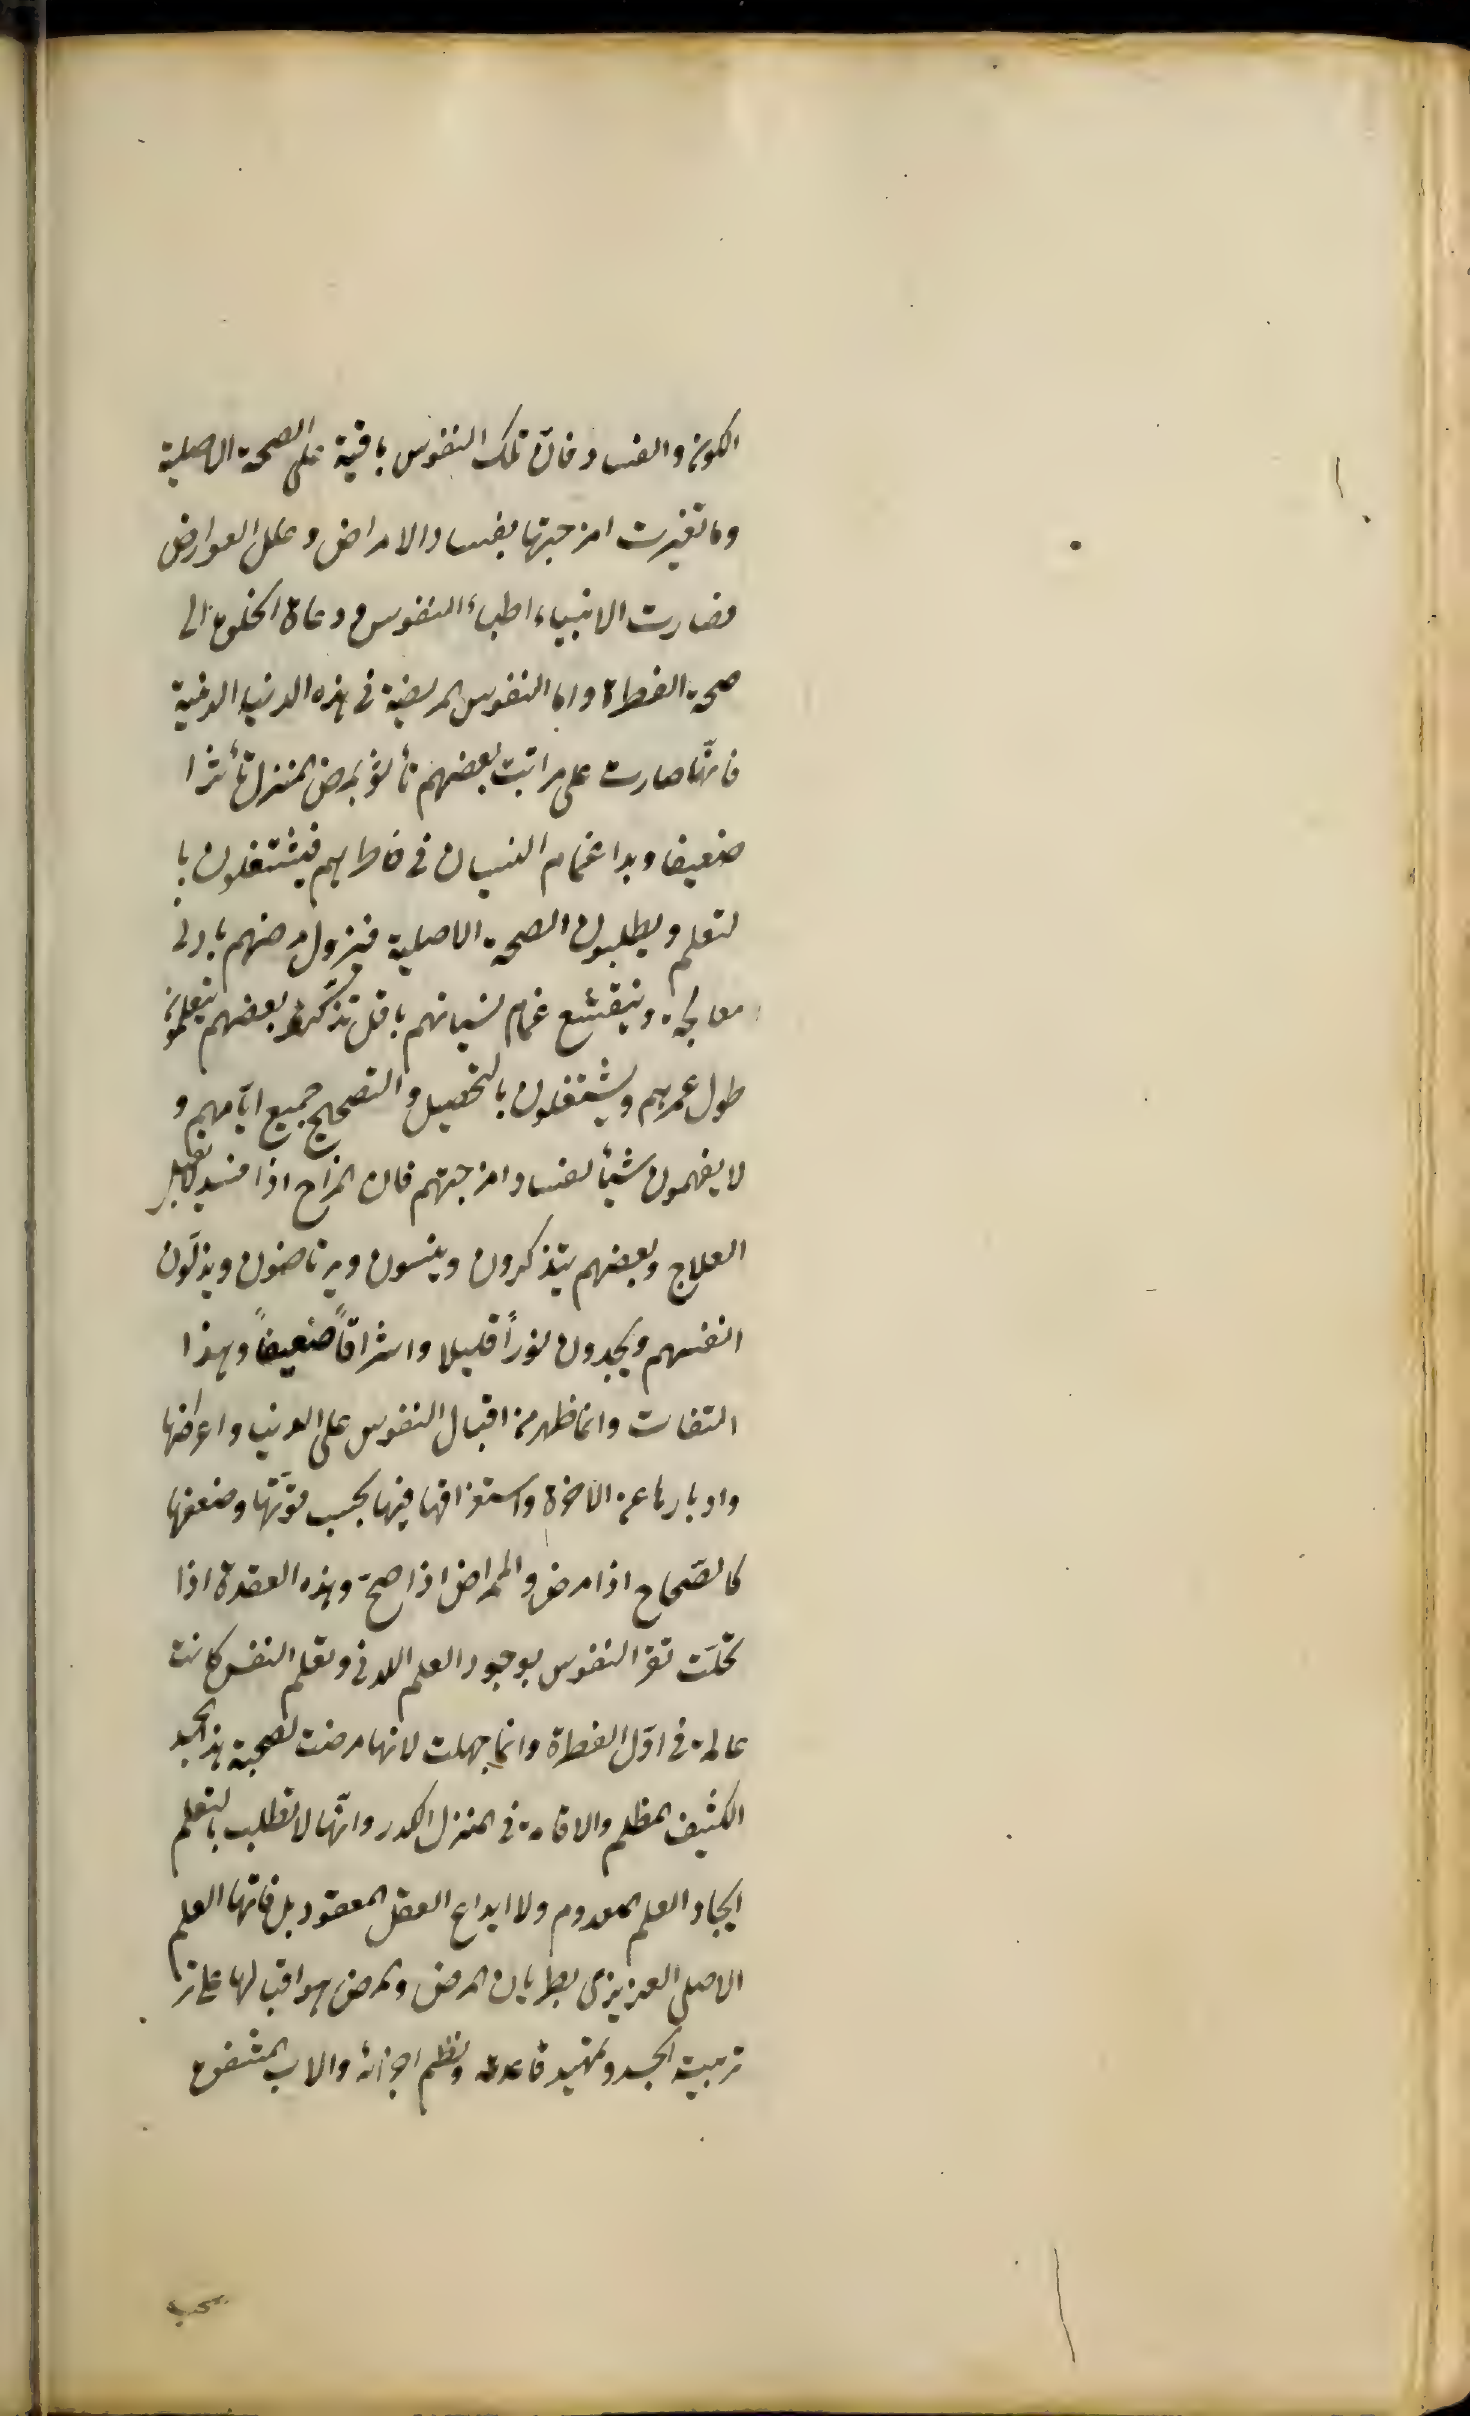 الكون والفساد فانّ تلك النفوس باقية على الصحة الاصلية
وما تغيرت امزجتها بفساد الامراض وعلل العوارض
فصارت الانبياء اطباء النفوس ودعاة الخلق الى
صحة الفطرة واما النفوس المريضة فى هذه الدنيا الدنية
فانّها صارت على مراتب بعضهم تأثر بمرض المنزل تأثرا
ضعيفا وبدا غمام النسيان فى خاطرهم فيشتغلون با
لتعلم ويطلبون الصحة الاصلية فيزول مرضهم بادنى
معالجة وينقشع غمام نسيانهم باقل تذكر وبعضهم يتعلمون
طول عمرهم ويشتغلون بالتحصيل والتصحيح جميع ايّامهم و
لا يفهمون شيأ لفساد امزجتهم فان المزاج اذا فسد لا يقبل
العلاج وبعضهم يتذكرون وينسون ويرتاضون ويذلّون
انفسهم ويجدون نوراً قليلا واشراقاً ضعيفاً وهذا
التفات وانما ظهر من اقبال النفوس على الدنيا واعراضها
وادبارها عن الاخرة واستغراقها فيها بحسب قوّتها وضعفها
كالصّحاح اذا مرض والممراض اذا صحّ وهذه العقدة اذا
تحلّت تقر النفوس بوجود العلم اللدنى وتعلم النفس كانت
عالمة فى اوّل الفطرة وانما جهلت لانها مرضت لصحبة هذا الجسد
الكثيف المظلم والاقامة فى المنزل الكدر وانّها لا تطلب بالتعلم
ايجاد العلم المعدوم ولا ابداع العقل المفقود بل فاتها العلم
الاصلى العزيزى بطريان المرض والمرض هو اقبالها على تز
تربية الجسد وتمهيد قاعدته ونظم اجزائه والاب المشفق